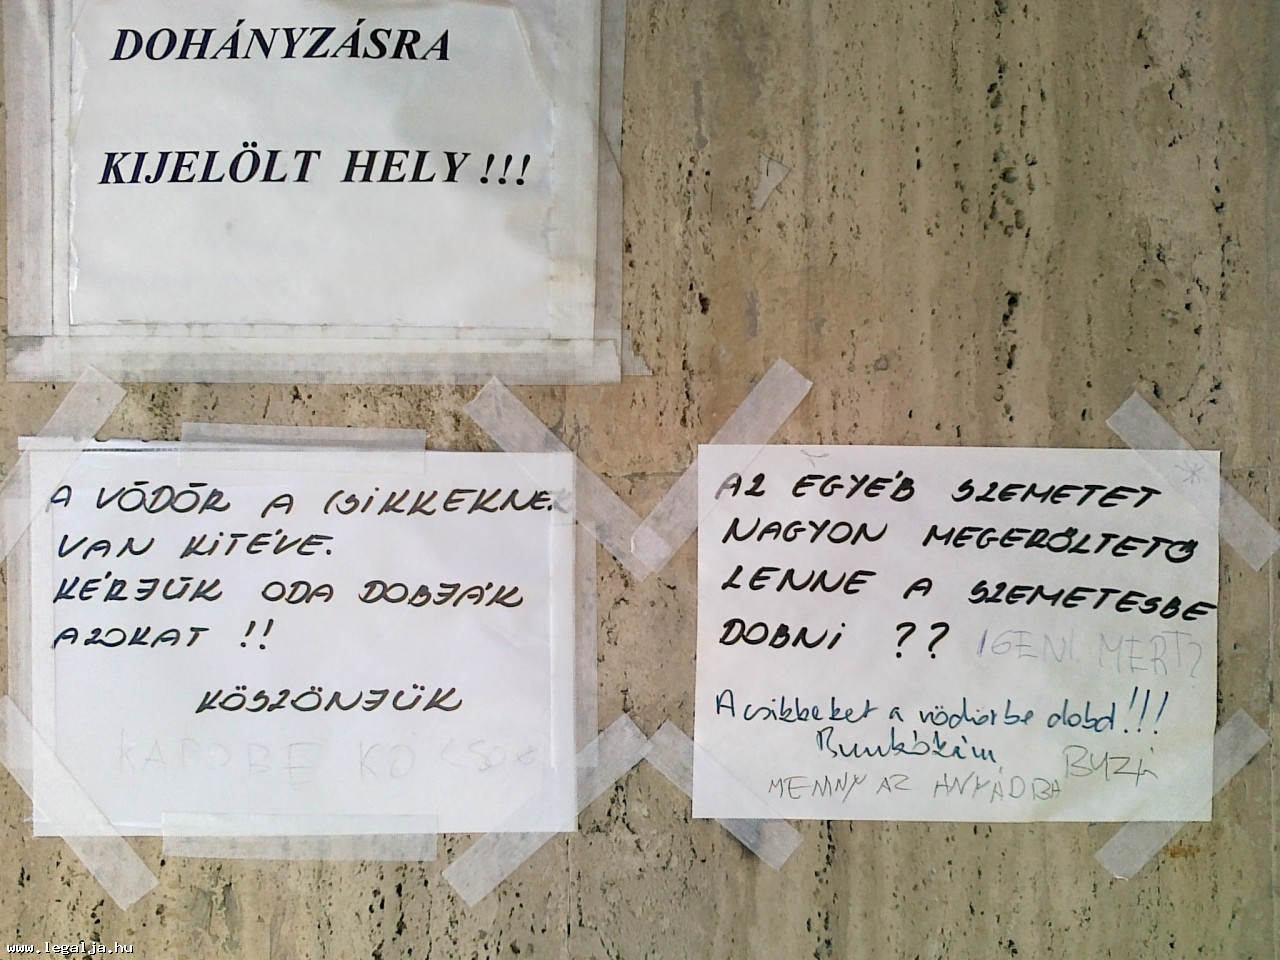 DOHÁNYZÁSRA
KIJELÖLT HELY !!!
A VÖDÖR A CSIKKEKNEK
VAN KITÉVE.
KÉRJÜK ODA DOBJÁK
AZOKAT !!
KÖSZÖNJÜK
AZ EGYÉB SZEMETET
NAGYON MEGERŐLTETŐ
LENNE A SZEMETESBE
DOBNI ??
IGEN! MERT?
A csikkeket a vödörbe dobd!!!
Bunkókám
BUZI
MENNY AZ ANYÁDBA
www.legalja.hu